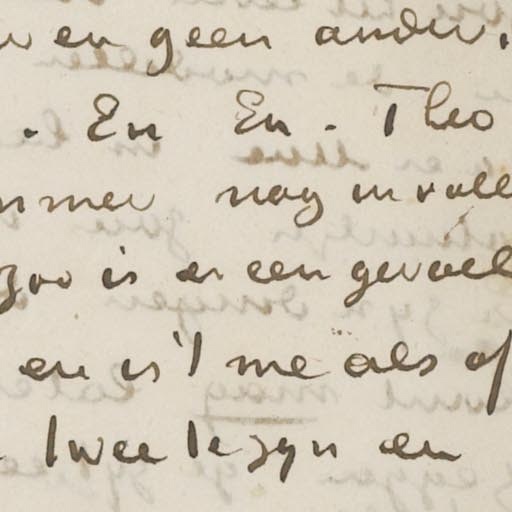 en geen ander.
. En En. Theo
mmer nog invall
zoo is er een gevoel
en is't me als of
twee te zyn en